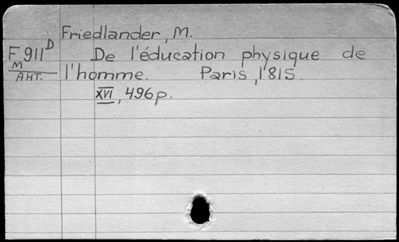 Friedlander, M.
F 911 D De l'éducation physique de
M
АНТ. l'homme. Paris, 1815.
XVI, 496 p.